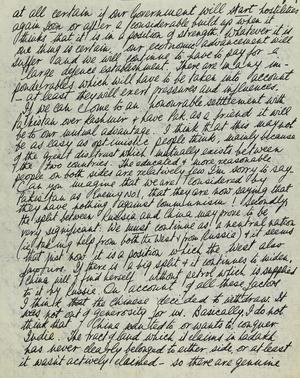 at all certain if our Government will start hostilities
again soon or after a considerable build up when it
thinks that it is in a position of strength. Whatever it is
one thing is certain, our economic advancement will
suffer and we will continue to have to pay for a
large defence establishment. There are many im-
ponderables which will have to be taken into account
— at least they will exert pressures and influences.
If we can come to an honourable settlement with
Pakistan over Kashmir & have Pak as a friend it will
be to our mutual advantage. I think that this may not
be as easy as optimistic people think, mainly because
of the great distrust which mutually exists between
the two countries. The educated & more reasonable
people on both sides are relatively few I'm sorry to say.
Can you imagine that we are considered by
Pakistan as Enemy No1, that they are now saying that
they have nothing against communism! Secondly,
the split between Russia and China may prove to be
very significant. We must continue as a neutral nation
(i.e. taking help from both the West & from Russia) & it seems
that just now it is a position which the West also
favours. If there is a big split & it continues to widen,
China will find herself without petrol which is supplied
to it by Russia. On account of all these factors
I think that the Chinese decided to withdraw. It
was not out of generosity for us. Basically, I do not
think that China wanted to or wants to conquer
India. The tract of land which it claims in Ladakh
has never clearly belonged to either side, or at least
it wasn't actively claimed — so there are genuine